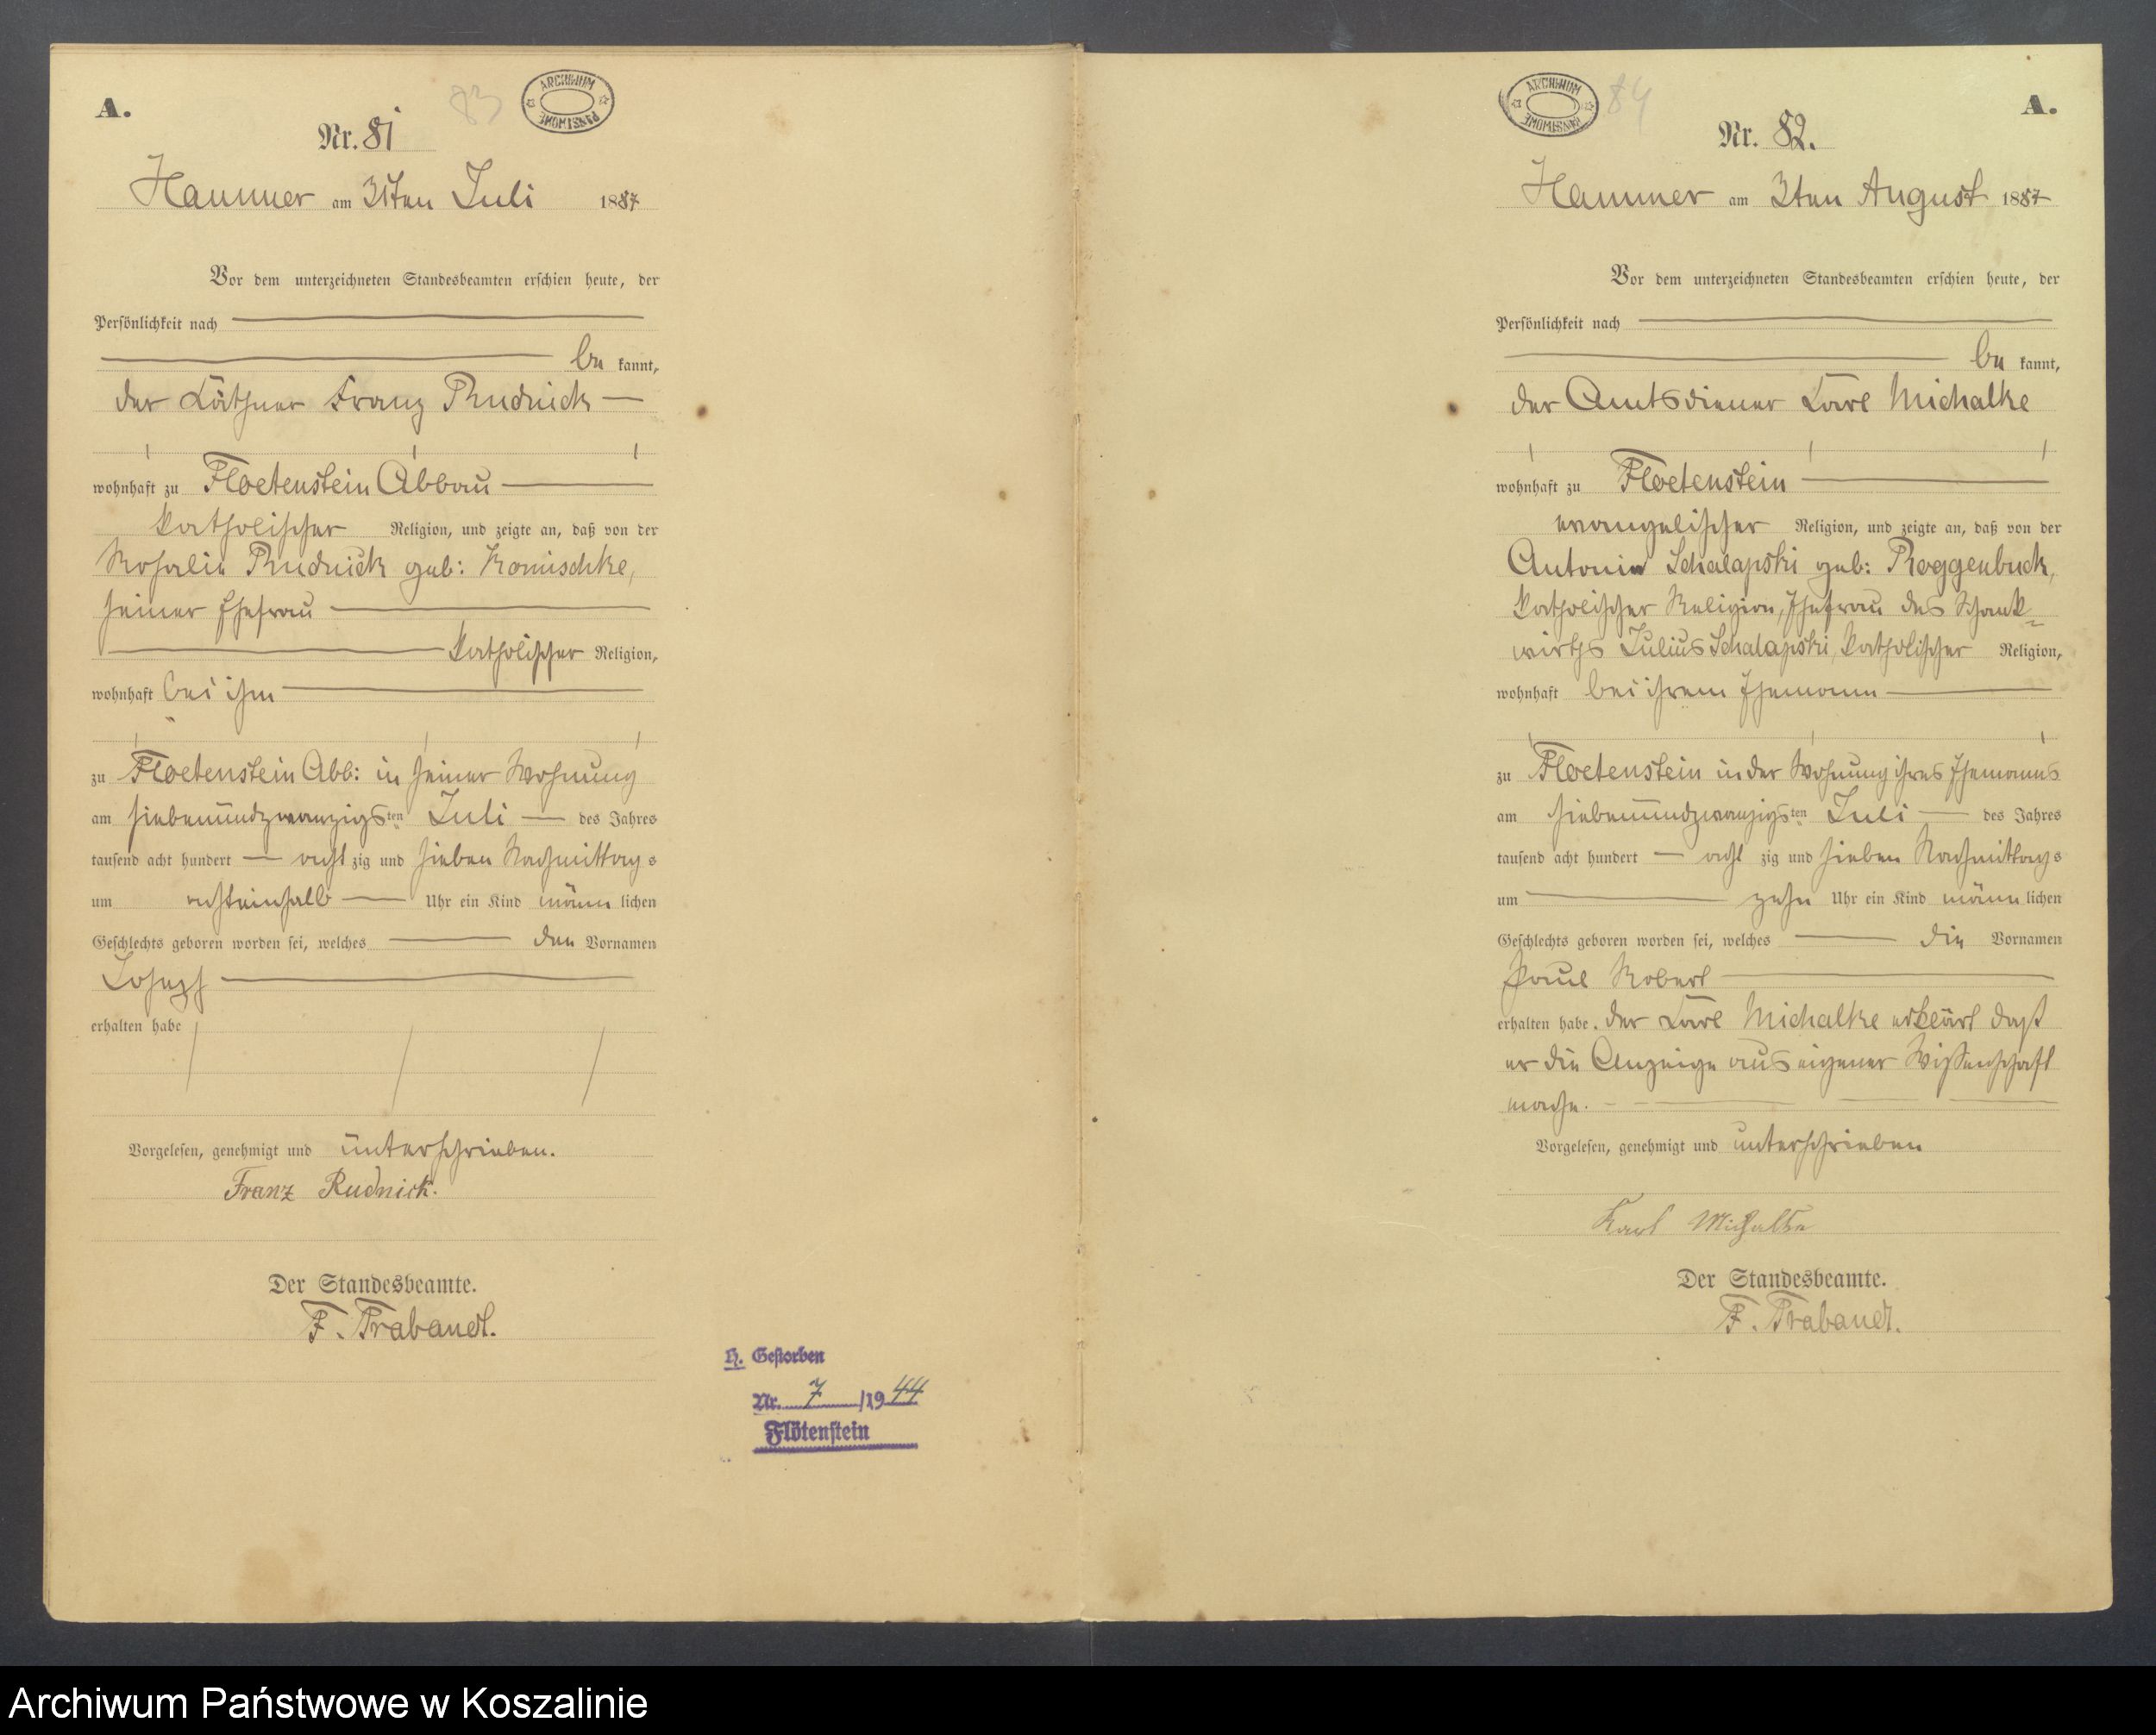 A.
83
ARCHIWUM PAŃSTWOWE
Nr. 81
Hammer am 31ten Juli 1887
Vor dem unterzeichneten Standesbeamten erschien heute, der
Persönlichkeit nach
be kannt,
der Käthner Franz Rudnick
wohnhaft zu Floetenstein Abbau
katholischer Religion, und zeigte an, daß von der
Rosalie Rudnick geb: Komischke,
seiner Ehefrau
katholischer Religion,
wohnhaft bei ihm
zu Floetenstein Abb: in seiner Wohnung
am siebenundzwanzigsten Juli des Jahres
tausend acht hundert acht zig und sieben Nachmittags
um achteinhalb Uhr ein Kind männ lichen
Geschlechts geboren worden sei, welches den Vornamen
Joseph
erhalten habe
Vorgelesen, genehmigt und unterschrieben.
Franz Rudnick.
Der Standesbeamte.
F. Trabandt.
H. Gestorben
Nr. 7 /1944
Flötenstein
ARCHIWUM PAŃSTWOWE
84
A.
Nr. 82.
Hammer am 3ten August 1887
Vor dem unterzeichneten Standesbeamten erschien heute, der
Persönlichkeit nach
be kannt,
der Amtsdiener Karl Michalke
wohnhaft zu Floetenstein
evangelischer Religion, und zeigte an, daß von der
Antonie Schalapski geb: Roggenbuck,
katholischer Religion, Ehefrau des Schank-
wirths Julius Schalapski, katholischer Religion,
wohnhaft bei ihrem Ehemann
zu Floetenstein in der Wohnung ihres Ehemanns
am siebenundzwanzigsten Juli des Jahres
tausend acht hundert acht zig und sieben Nachmittags
um zehn Uhr ein Kind männ lichen
Geschlechts geboren worden sei, welches die Vornamen
Paul Robert
erhalten habe. Der Karl Michalke erklärt daß
er die Anzeige aus eigener Wissenschaft
mache.
Vorgelesen, genehmigt und unterschrieben
Karl Michalke
Der Standesbeamte.
F. Trabandt.
Archiwum Państwowe w Koszalinie